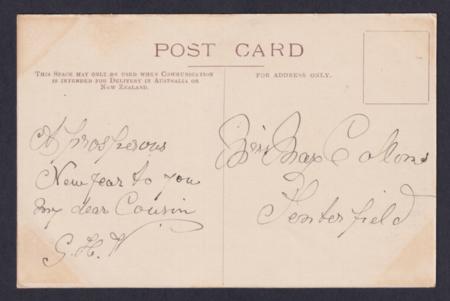 POST CARD
THIS SPACE MAY ONLY BE USED WHEN COMMUNICATION
IS INTENDED FOR DELIVERY IN AUSTRALIA OR
NEW ZEALAND.
FOR ADDRESS ONLY.
A prosperous
New Year to you
my dear Cousin
G. H. N
Miss Max
Tenterfield